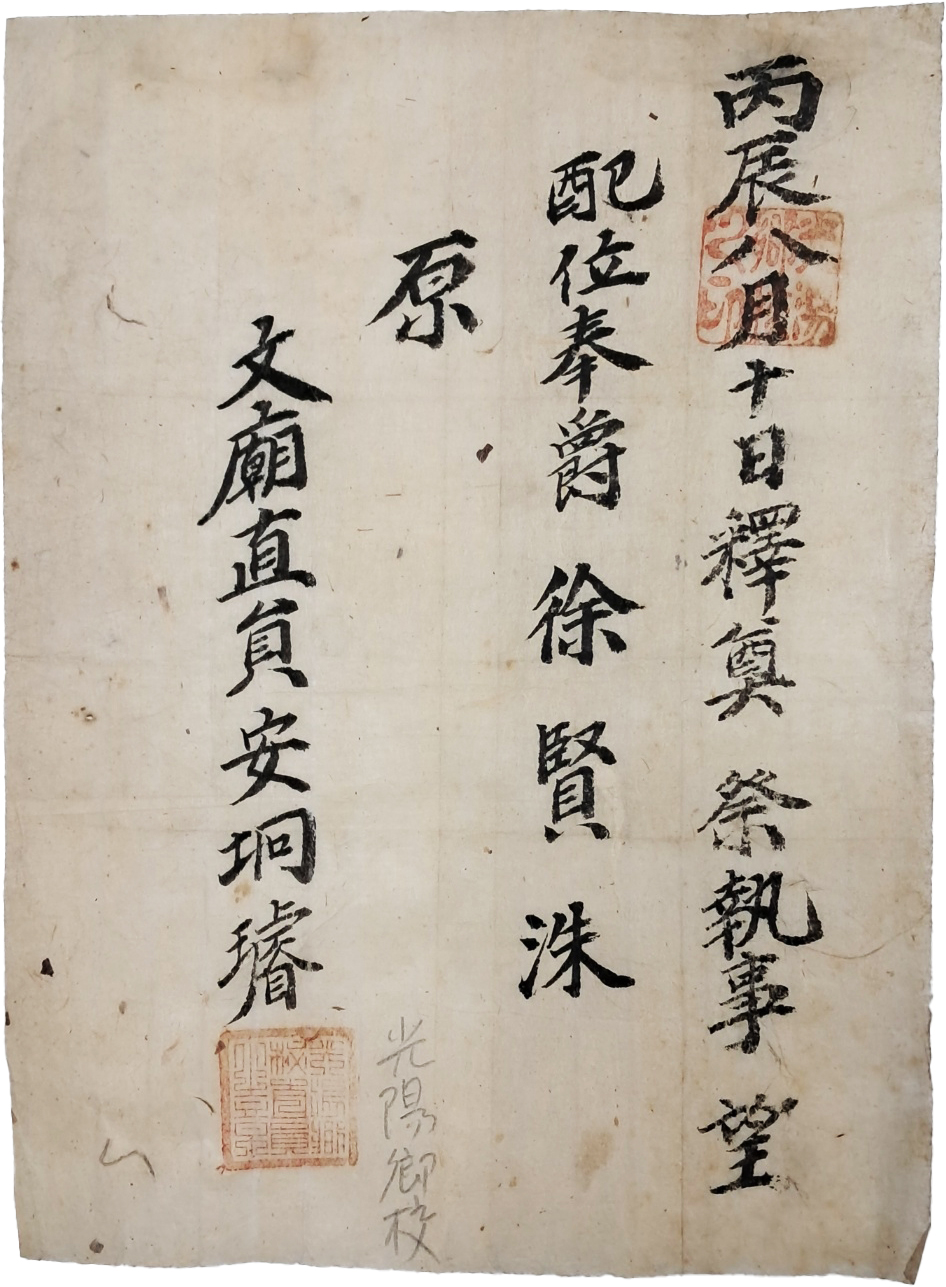 丙辰八月十日釋奠 祭執事 望
配位奉爵 徐賢洙
原
文廟直員安坰璿
光陽鄕校